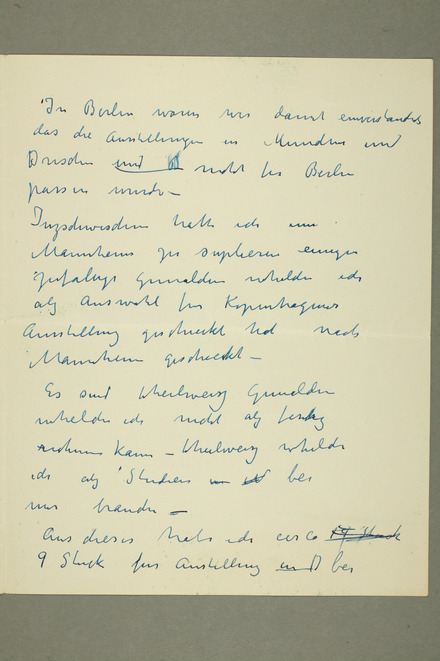 In Berlin waren wir damit einverstanden
das die Ausstellungen in München und
Dresden und nicht für Berlin
passen wurde –
Inzschwischen hatte ich um
Mannheim zu einigen
Gemalden whelde ich
als Auswahl für Kopenhagener
Ausstellung geschickt hat nach
Mannheim geschickt –
Es sind theilweisz Gemalden
whelde ich nicht als fertig
nehmen kann – theilweisz whelde
ich als Studien bei
mir brauche –
Aus dieses habe ich circa 14 Stuck
9 Stuck fur Austellung bei